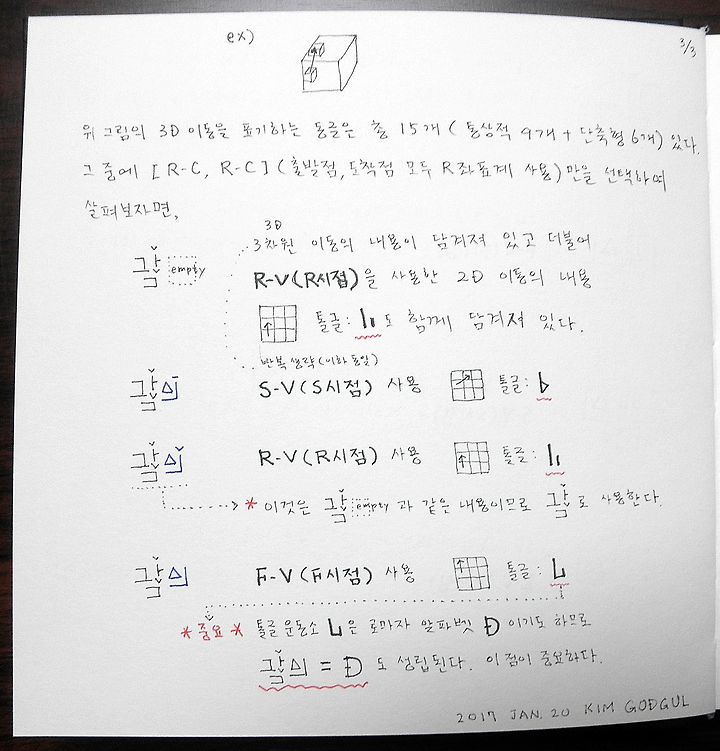 ex)
3/3
위 그림의 3D 이동을 표기하는 톨글은 총 15개 ( 통상적 9개 + 단축형 6개) 있다.
그 중에 [R-C, R-C] (출발점, 도착점 모두 R좌표계 사용) 만을 선택하여
살펴보자면,
empty
3D
3차원 이동의 내용이 담겨져 있고 더불어
R-V(R시점)을 사용한 2D 이동의 내용
톨글: 도 함께 담겨져 있다.
반복 생략 (이하 동일)
S-V(S시점) 사용 톨글:
R-V(R시점) 사용 톨글:
* 이것은 empty 과 같은 내용이므로 로 사용한다.
F-V(F시점) 사용 톨글: L
* 중요 * 톨글 운동소 L은 로마자 알파벳 D 이기도 하므로
= D 도 성립된다. 이 점이 중요하다.
2017 JAN. 20 KIM GODGUL